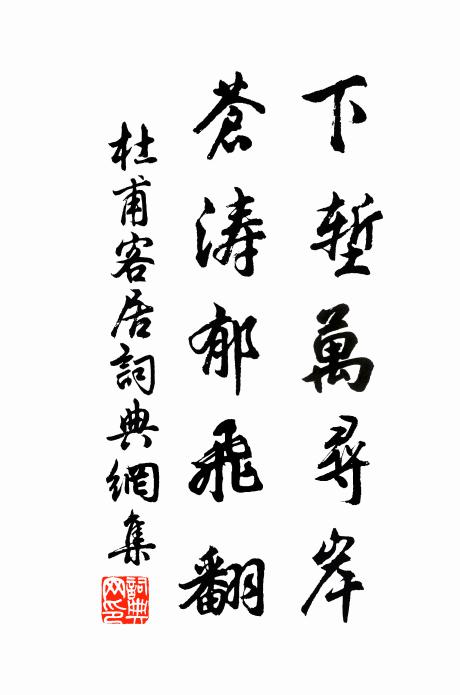 下堑萬尋岸
蒼涛郁飛翻
杜甫客居詞典網集
詞典网印